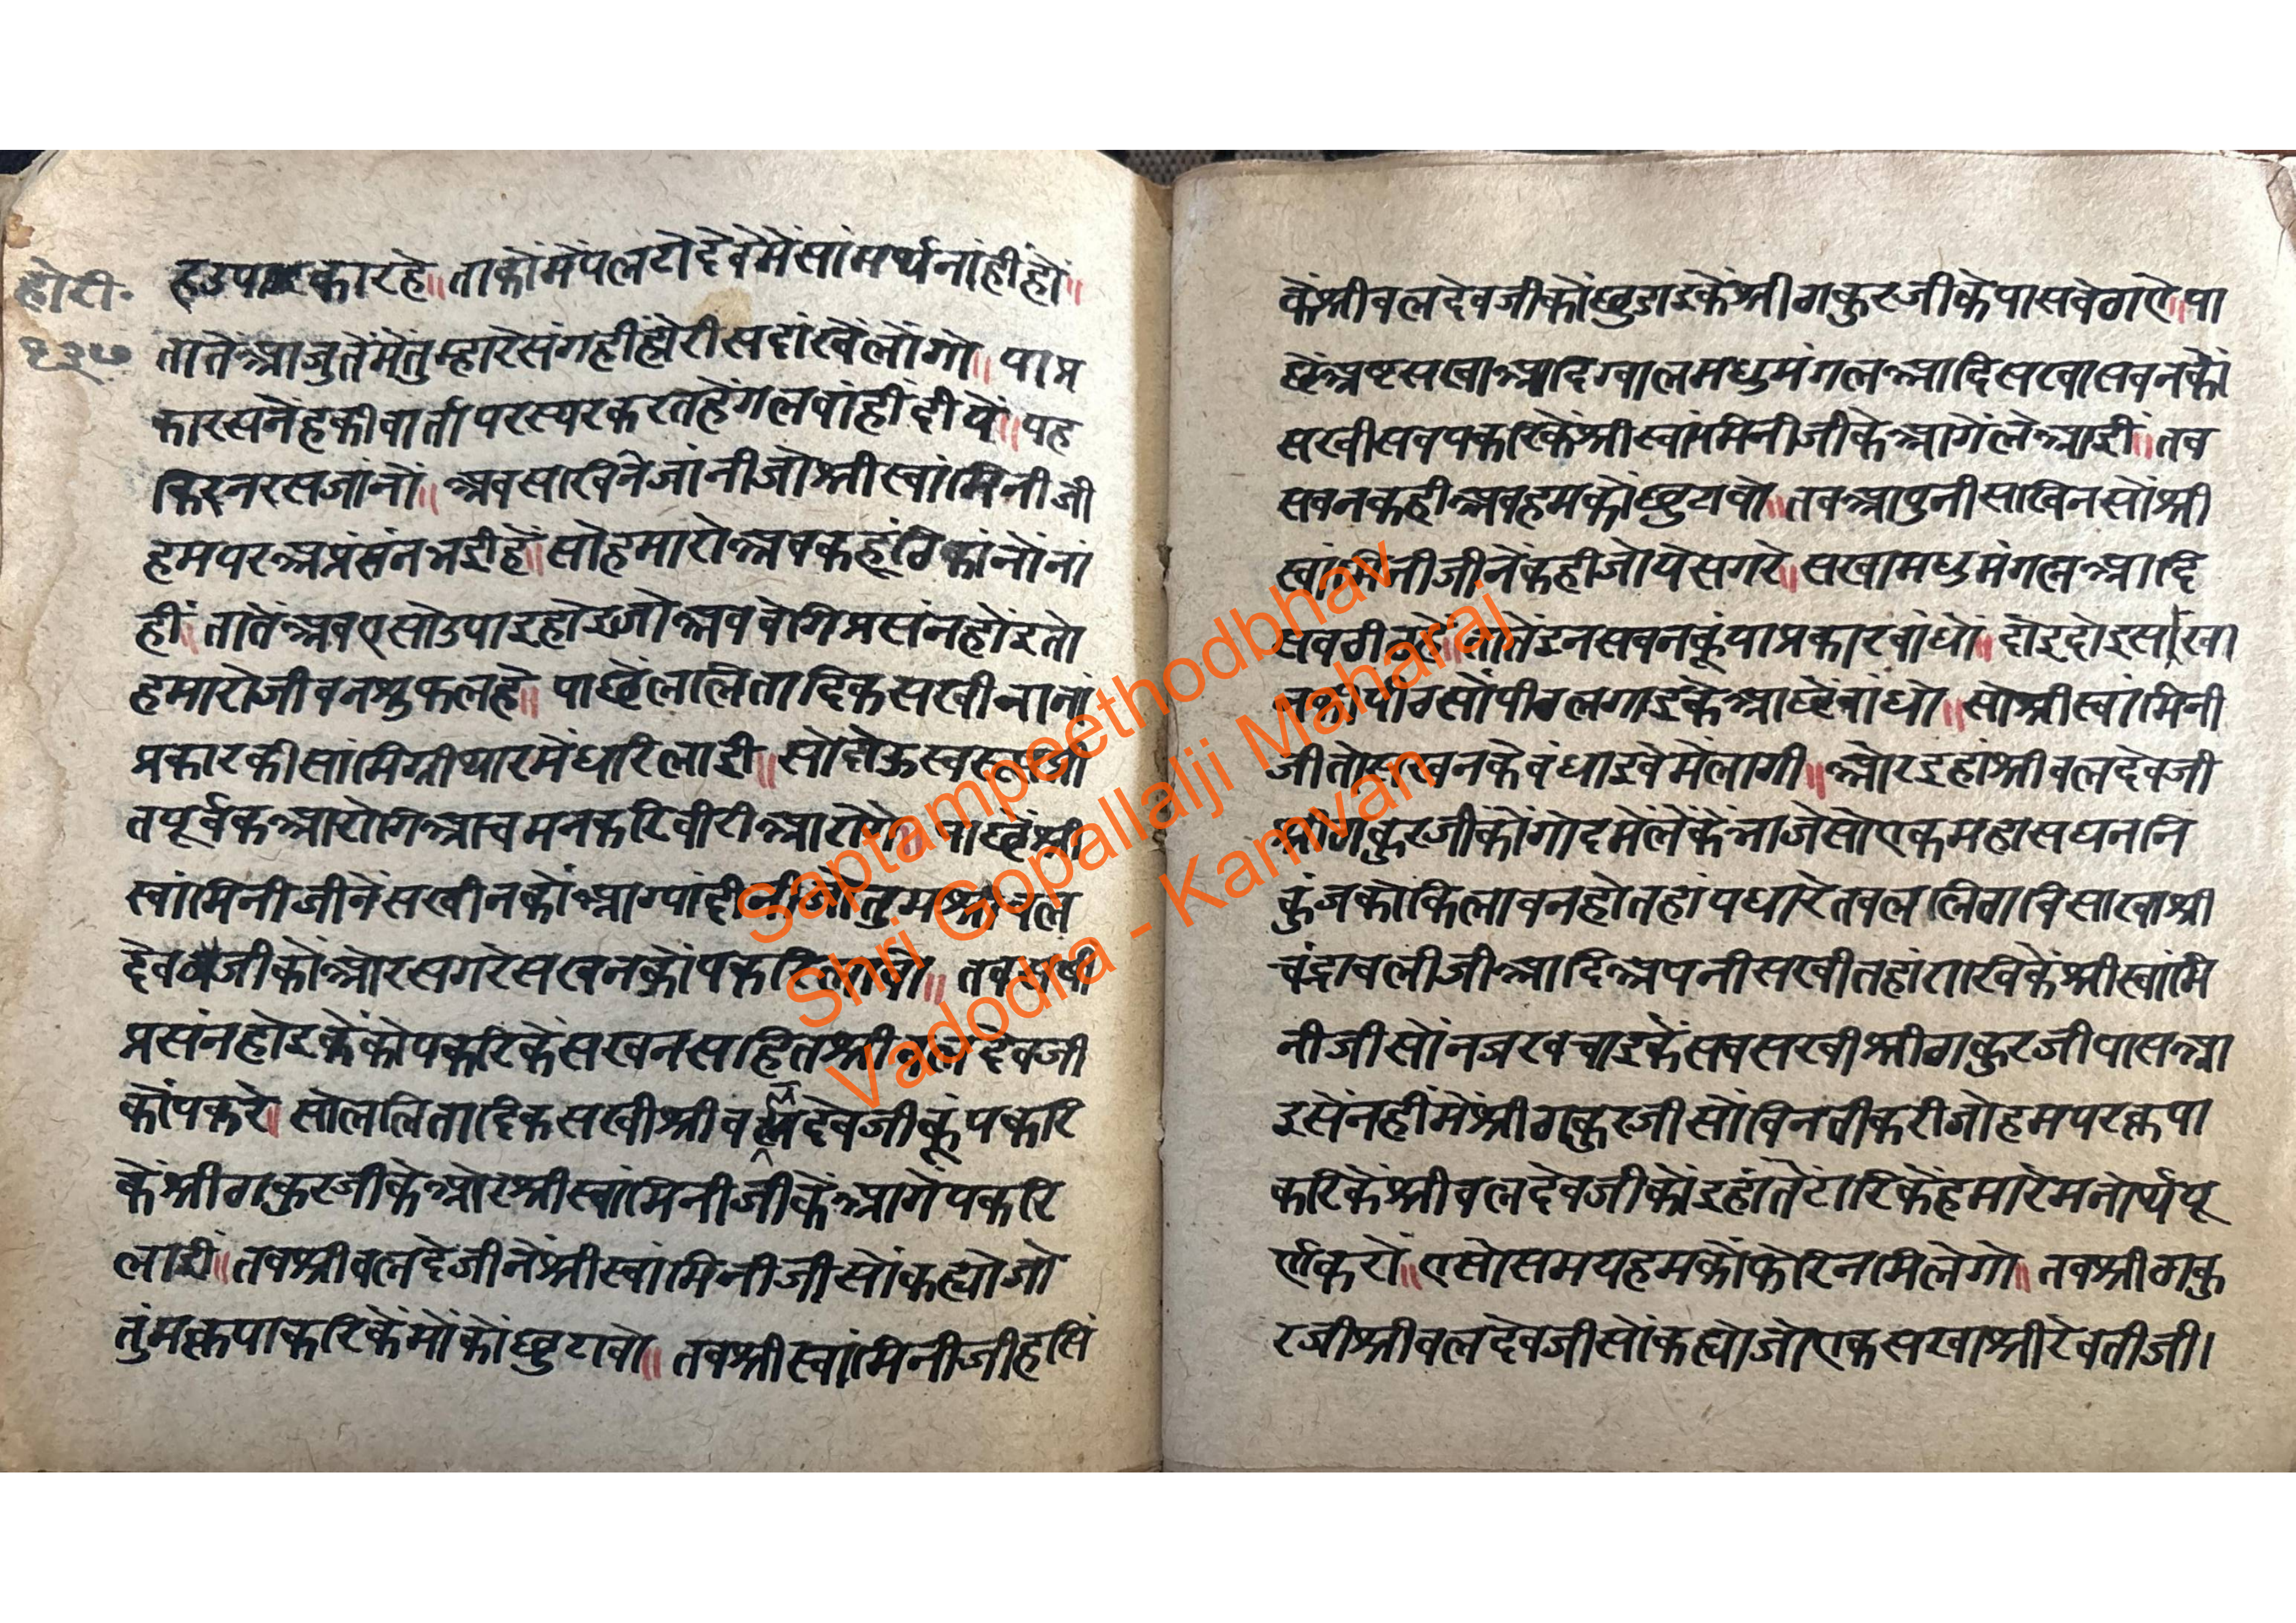 होरी.
१३७
हउपकारहे॥ ताकोंमेंपलटोदेवेमेंसांमर्थनांहींहों॥
तातेंआजुतेंमेंतुम्हारेसंगहींहोरीसदांखेलोंगो॥ याप्र
कारसनेहकीवार्तापरस्परकरतहेंगलवांहींदीयें॥ यह
किंनरसजांनों॥ अवसाखिनेजांनीजोश्रीस्वांमिनीजी
हमपरअप्रंसंनभईहें॥ सोहमारोअवकहूंठिकांनोंनां
हीं॥ तातेंअवएसोउपाइहोइजोअववेगिप्रसंनहोंइतो
हमारोजीवनश्रुफलहे॥ पाछेंललितादिकसखीनानां
प्रकारकीसांमिग्रीथारमेंधरिलाई॥ सोदोऊस्वरूप
तपूर्वकआरोगिआचमनकरिवीरीआरोगे॥ पाछेंश्री
स्वांमिनीजीनेंसखीनकोंआग्यांदीनीजोतुमश्रीवल
देवजीकोंओरसगरेसखनकोंपकरिलावो॥ तवसखी
प्रसंनहोइकेंकोपकरिकेंसखनसहितश्रीवलदेवजी
कोंपकरे॥ सोललितादिकसखीश्रीवलदेवजीकूंपकरि
केंश्रीठाकुरजीकेओरश्रीस्वांमिनीजीकेंआगेंपकरि
लाई॥ तवश्रीवलदेजीनेंश्रीस्वांमिनीजीसोंकह्योजो
तुंमकृपाकरिकेंमोंकोंछुटावो॥ तवश्रीस्वांमिनीजीहसिं
केंश्रीवलदेवजीकोंछुडाइकेंश्रीठाकुरजीकेपासवेठाऐ॥ पा
छेंअष्टसखाआदिग्वालमधुमंगलआदिसखासवनकों
सखीसवपकरिकेंश्रीस्वांमिनीजीकेआगेंलेआई॥ तव
सवनकहीअवहमकोंछुटावो॥ तवआपुनीसखिनसोंश्री
स्वांमिनीजीनेंकहीजोयेसगरे॥ सखामधुमंगलआदि
सवठीठहें॥ तातेंइनसवनकूंयाप्रकारवांधों॥ दोइदोइसखा
नकीपीठसोंपीठलगाइकेआछेंवांधो॥ सोश्रीस्वांमिनी
जीतोसखनकेवंधाइवेमेंलागी॥ ओरइहांश्रीवलदेवजी
श्रीठाकुरजीकोंगोदमेंलेंकेंभाजेसोएकमहासघननि
कुंजकोकिलावनहोतहांपधारेतवललिताविसाखाश्री
चंद्रावलीजीआदिअपनीसखीतहांराखिकेंश्रीस्वांमि
नीजीसोंनजरवचाइकेंसवसखीश्रीठाकुरजीपासआ
इसेंनहींमेंश्रीठाकुरजीसोंविनतीकरीजोहमपरकृपा
करिकेंश्रीवलदेवजीकोंइहांतेंटारिकेंहमारेमनोर्थपू
र्णकरों॥ एसोसमयहमकोंफेरिनमिलेगो॥ तवश्रीठाकु
रजीश्रीवलदेवजीसोंकह्योजोएकसखाश्रीरेवतीजी।
Saptampeethodbhav
Shri Gopallalji Maharaj
Vadodra - Kamvan